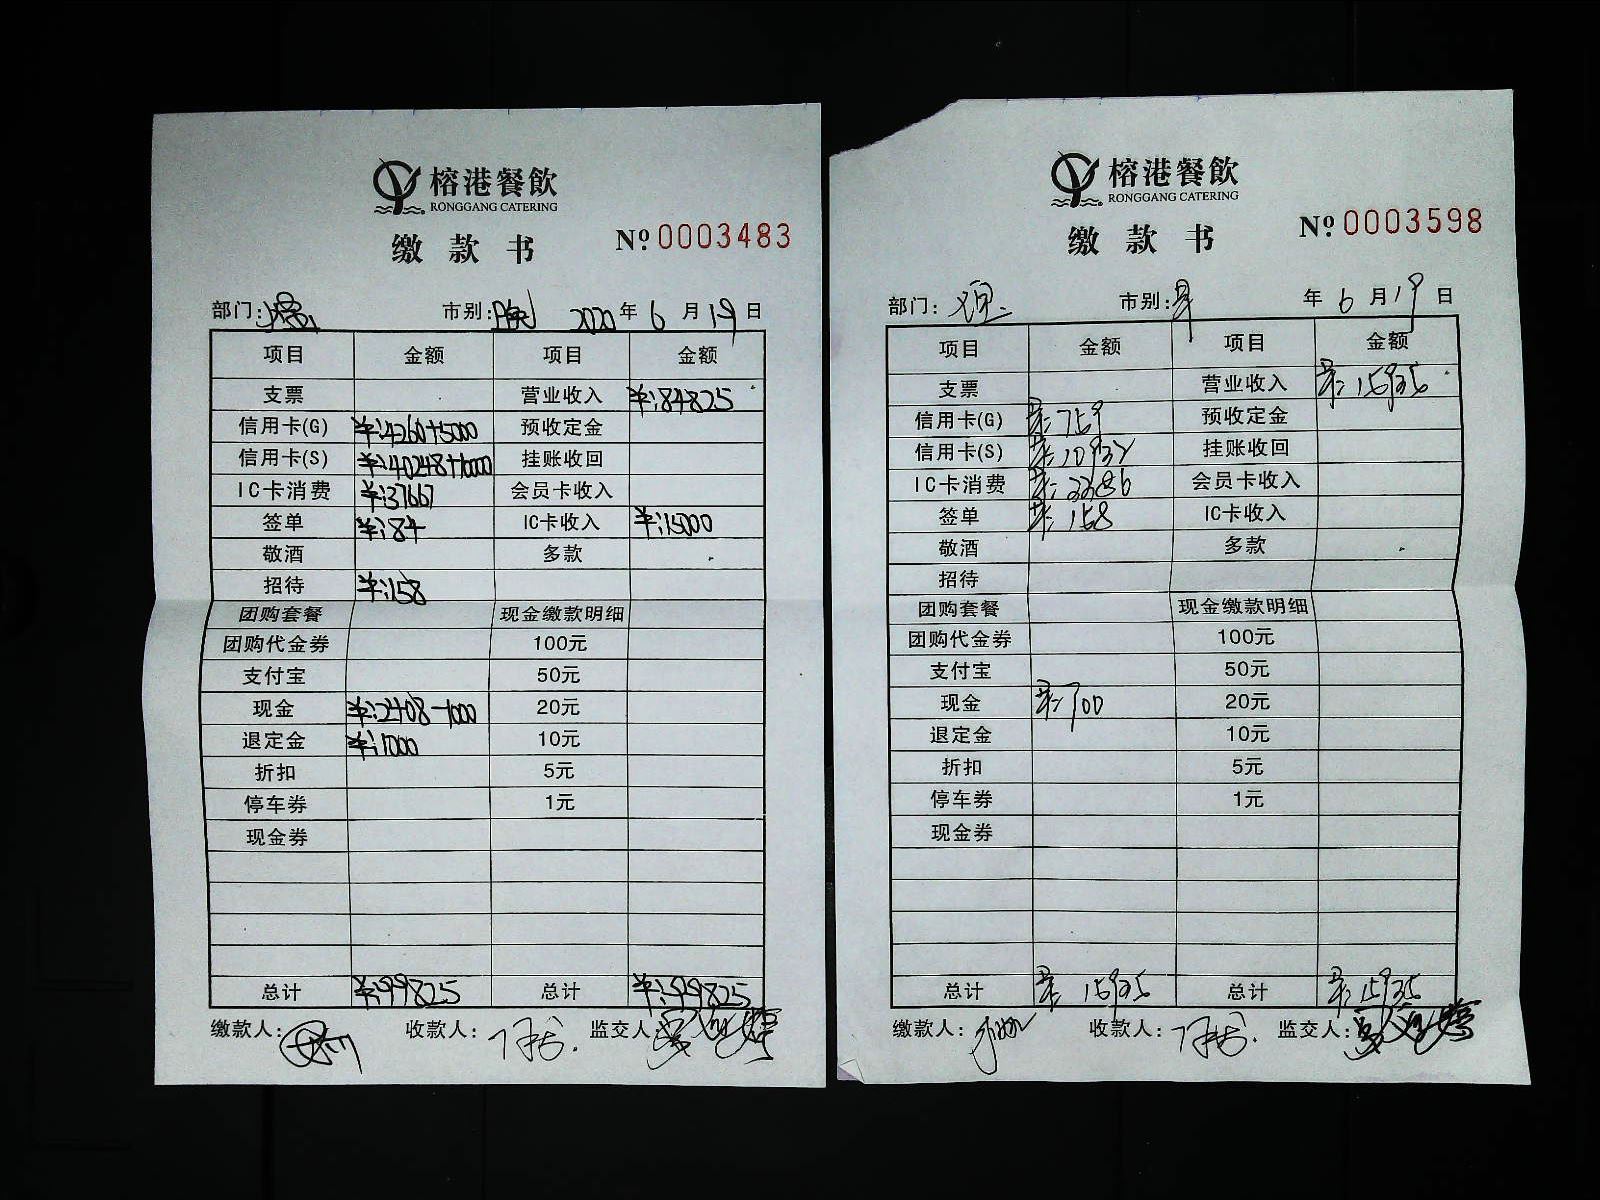 榕港餐飲
RONGGANG CATERING
缴款书 № 0003483
部门: 市别: 晚 2020 年 6 月 19 日
项目 金额 项目 金额
支票 营业收入 ¥:84825
信用卡(G) ¥:4260+5000 预收定金
信用卡(S) ¥:40248+10000 挂账收回
IC卡消费 ¥:37667 会员卡收入
签单 ¥:84 IC卡收入 ¥:15000
敬酒 多款
招待 ¥:158
团购套餐 现金缴款明细
团购代金券 100元
支付宝 50元
现金 ¥:2408-1000 20元
退定金 ¥:1000 10元
折扣 5元
停车券 1元
现金券
总计 ¥:99825 总计 ¥:99825
缴款人: 收款人: 监交人:
榕港餐飲
RONGGANG CATERING
缴款书 № 0003598
部门: 市别: 早 年 6 月 19 日
项目 金额 项目 金额
支票 营业收入 ¥:15935
信用卡(G) ¥:759 预收定金
信用卡(S) ¥:10932 挂账收回
IC卡消费 ¥:3386 会员卡收入
签单 ¥:158 IC卡收入
敬酒 多款
招待
团购套餐 现金缴款明细
团购代金券 100元
支付宝 50元
现金 ¥:700 20元
退定金 10元
折扣 5元
停车券 1元
现金券
总计 ¥:15935 总计 ¥:15935
缴款人: 收款人: 监交人: